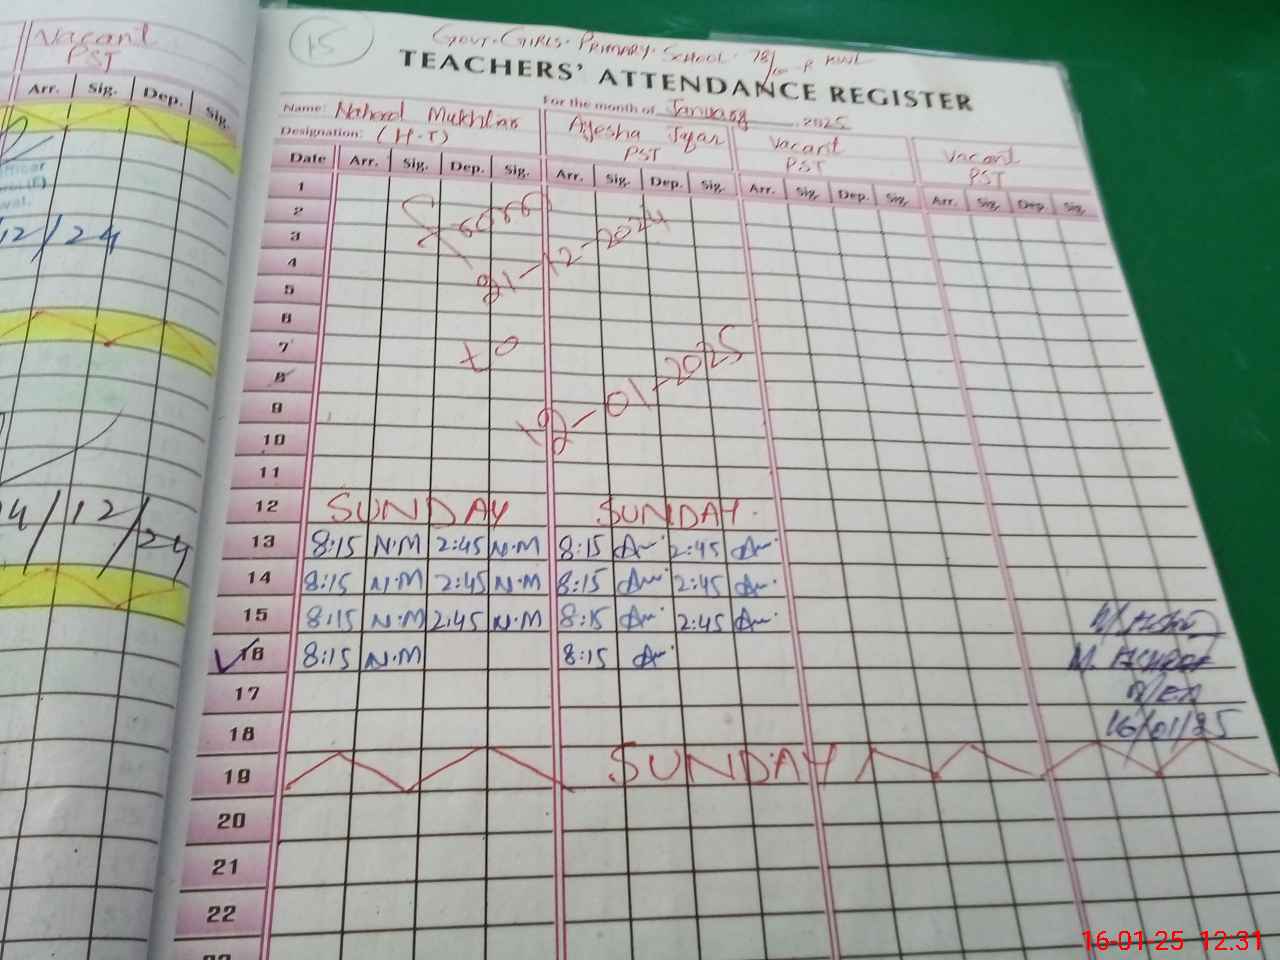 Vacant
PST
Arr. Sig. Dep. Sig.
12/24
4/12/24
15
Govt. Girls. Primary. School. 78/
TEACHERS' ATTENDANCE REGISTER
For the month of January 2025
Name: Mukhtar Ayesha vacant vacant
Designation: (H.T) PST PST PST
Date Arr. Sig. Dep. Sig. Arr. Sig. Dep. Sig. Arr. Sig. Dep. Sig. Arr. Sig. Dep. Sig.
1
2
3
4
5
6
7
8
9
10
11
21-12-2024
to
12-01-2025
12 SUNDAY SUNDAY
13 8:15 N.M 2:45 N.M 8:15 2:45
14 8:15 N.M 2:45 N.M 8:15 2:45
15 8:15 N.M 2:45 N.M 8:15 2:45
16 8:15 N.M 8:15
17
16/01/25
18
19 SUNDAY
20
21
22
16-01-25 12:31